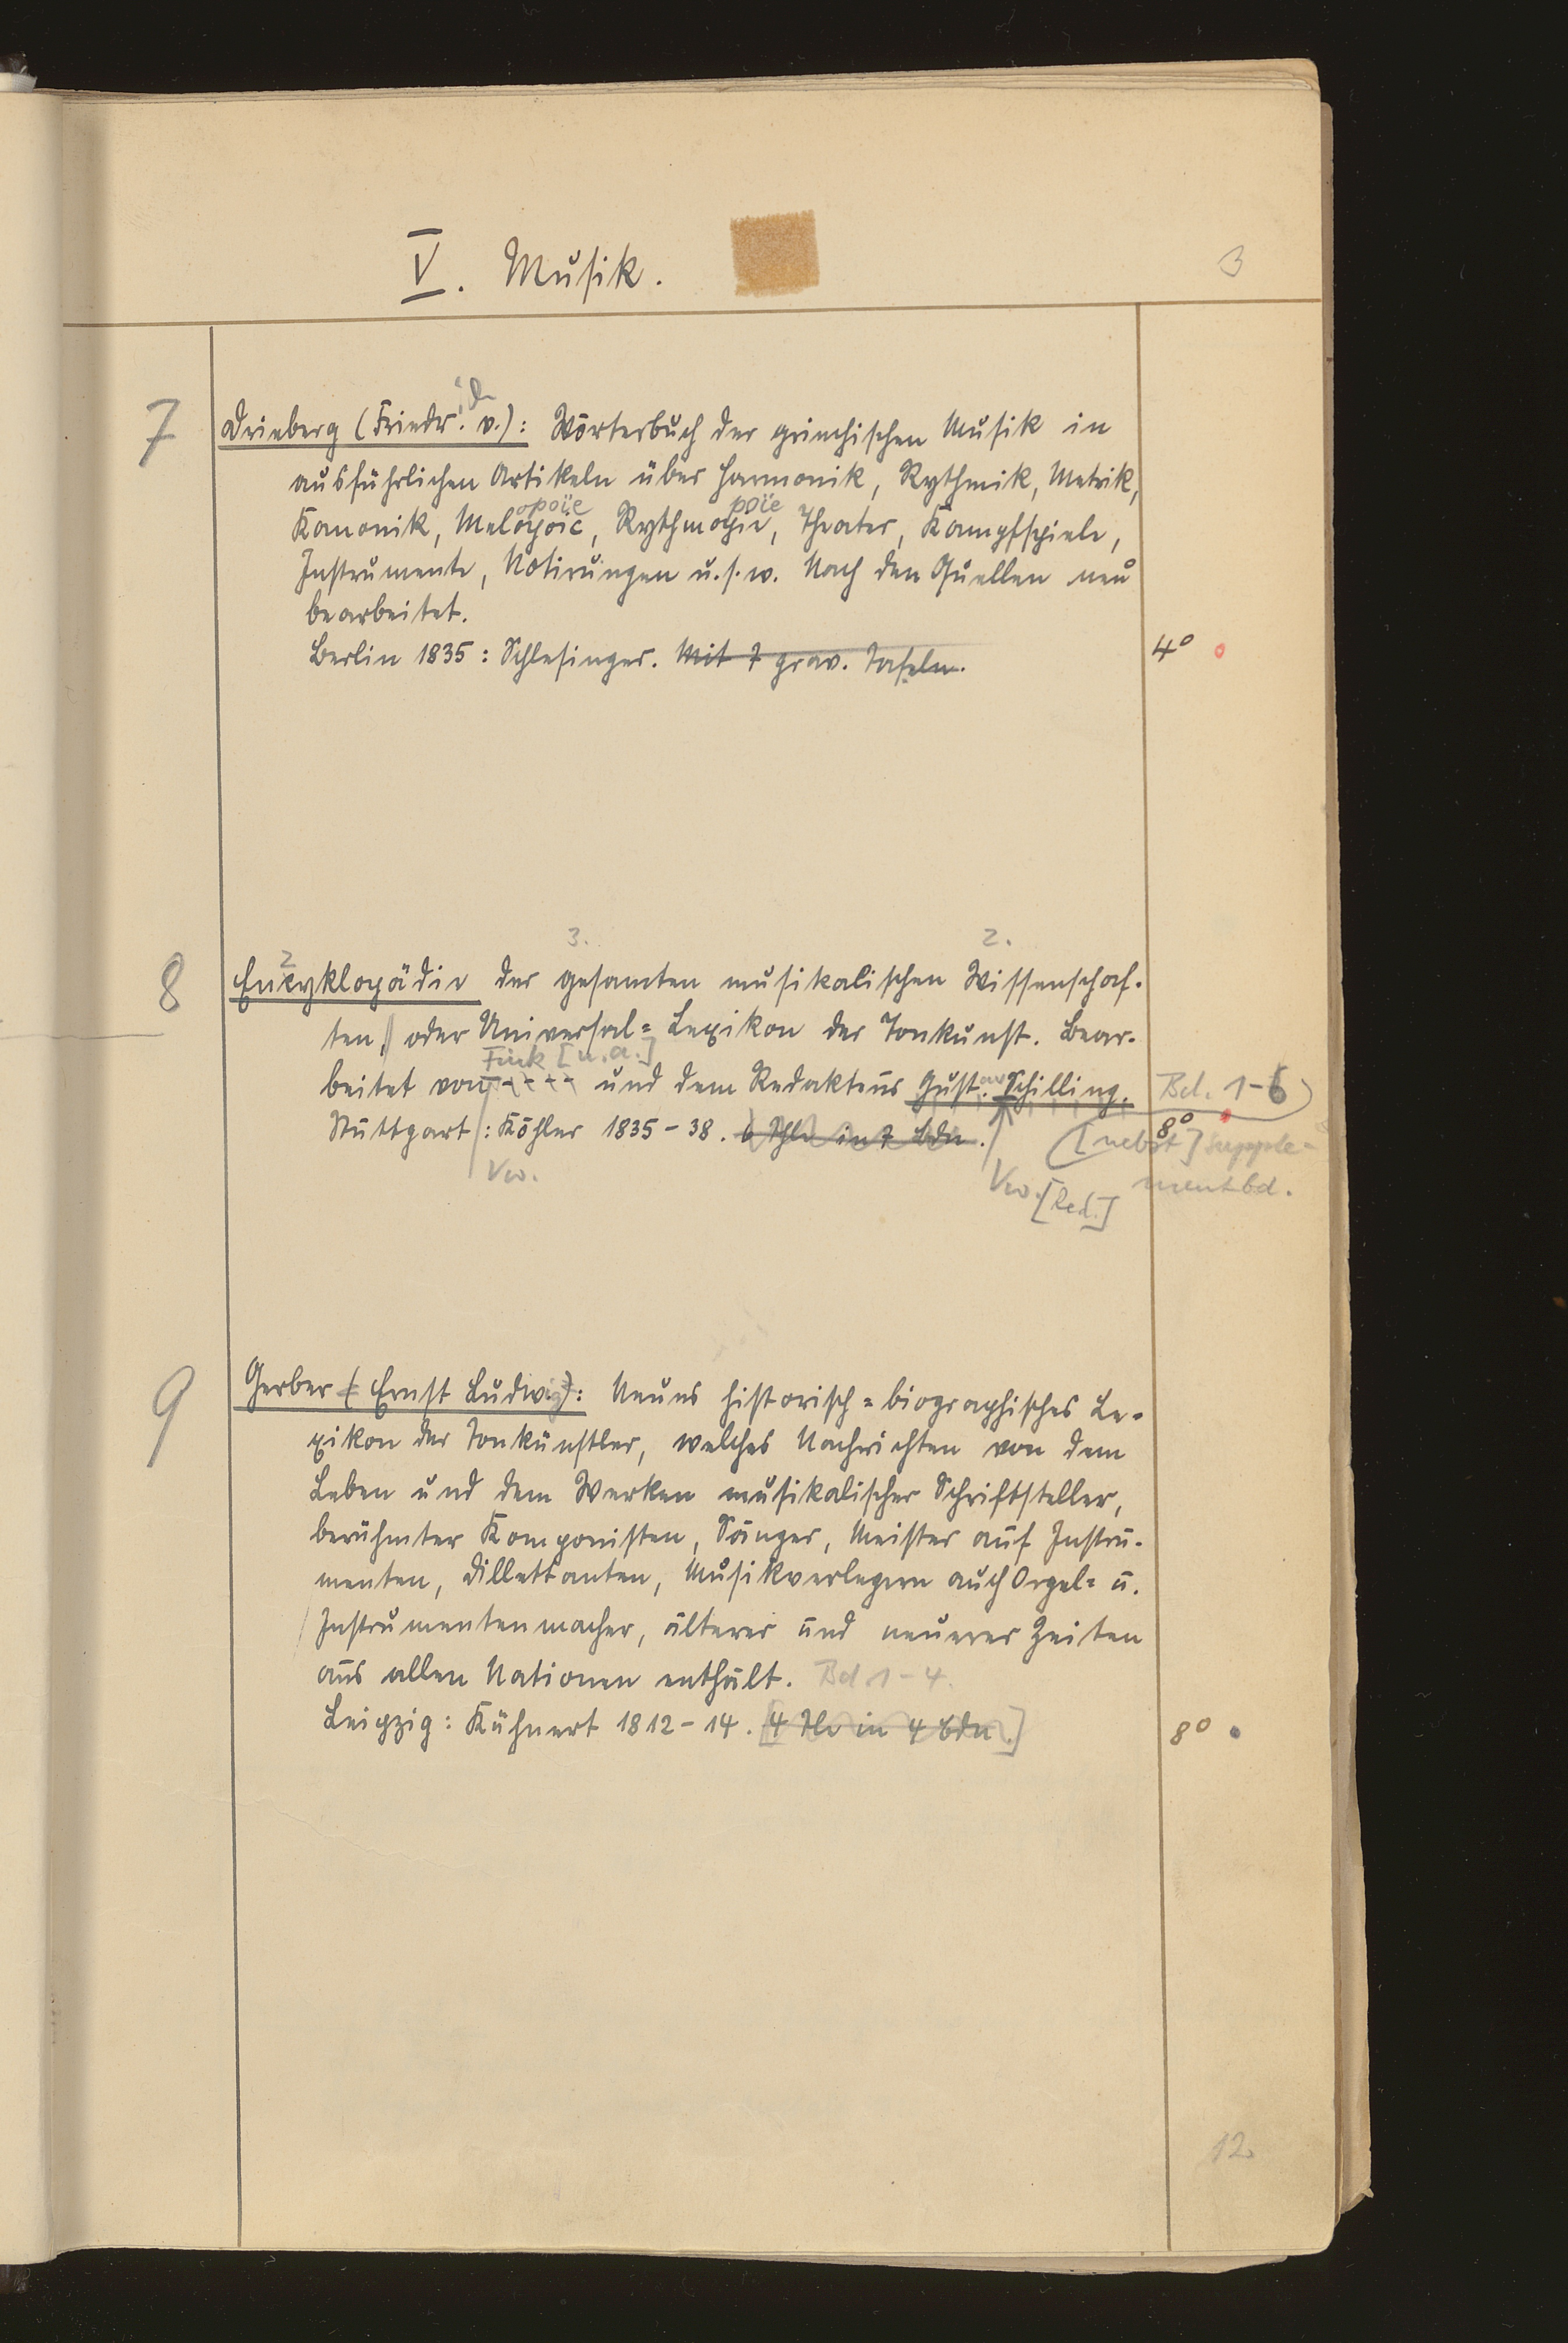 V. Musik.
3
7
Drieberg (Friedr. v.): Wörterbuch der griechischen Musik in
ausführlichen Artikeln über Harmonik, Rythmik, Metrik,
opoïe poïe
Kanonik, Melopoie, Rythmopie, Theater, Kampfspiele,
Instrumente, Notirungen u.s.w. Nach den Quellen neu
bearbeitet.
Berlin 1835: Schlesinger. Mit 7 grav. Tafeln.
4°
3. 2.
8
Encyklopädie der gesamten musikalischen Wissenschaf-
ten, oder Universal-Lexikon der Tonkunst. Bear-
Fink [u.a.]
beitet von - - - - und dem Redakteur Gust. Schilling.
Bd. 1-6
Stuttgart: Köhler 1835-38. 6 Thle in 7 Bdn.
8°
[nebst] Supple-
mentbd.
Vw.
Vw. [Red.]
9
Gerber (Ernst Ludwig): Neues historisch-biographisches Le-
xikon der Tonkünstler, welches Nachrichten von dem
Leben und dem Werken musikalischer Schriftsteller,
berühmter Komponisten, Sänger, Meister auf Instru-
menten, Dillettanten, Musikverlegern auch Orgel- u.
Instrumentenmacher, älterer und neuerer Zeiten
aus allen Nationen enthält. Bd. 1-4.
Leipzig: Kühnert 1812-14. [4 Tle in 4 Bdn.]
8°
12.